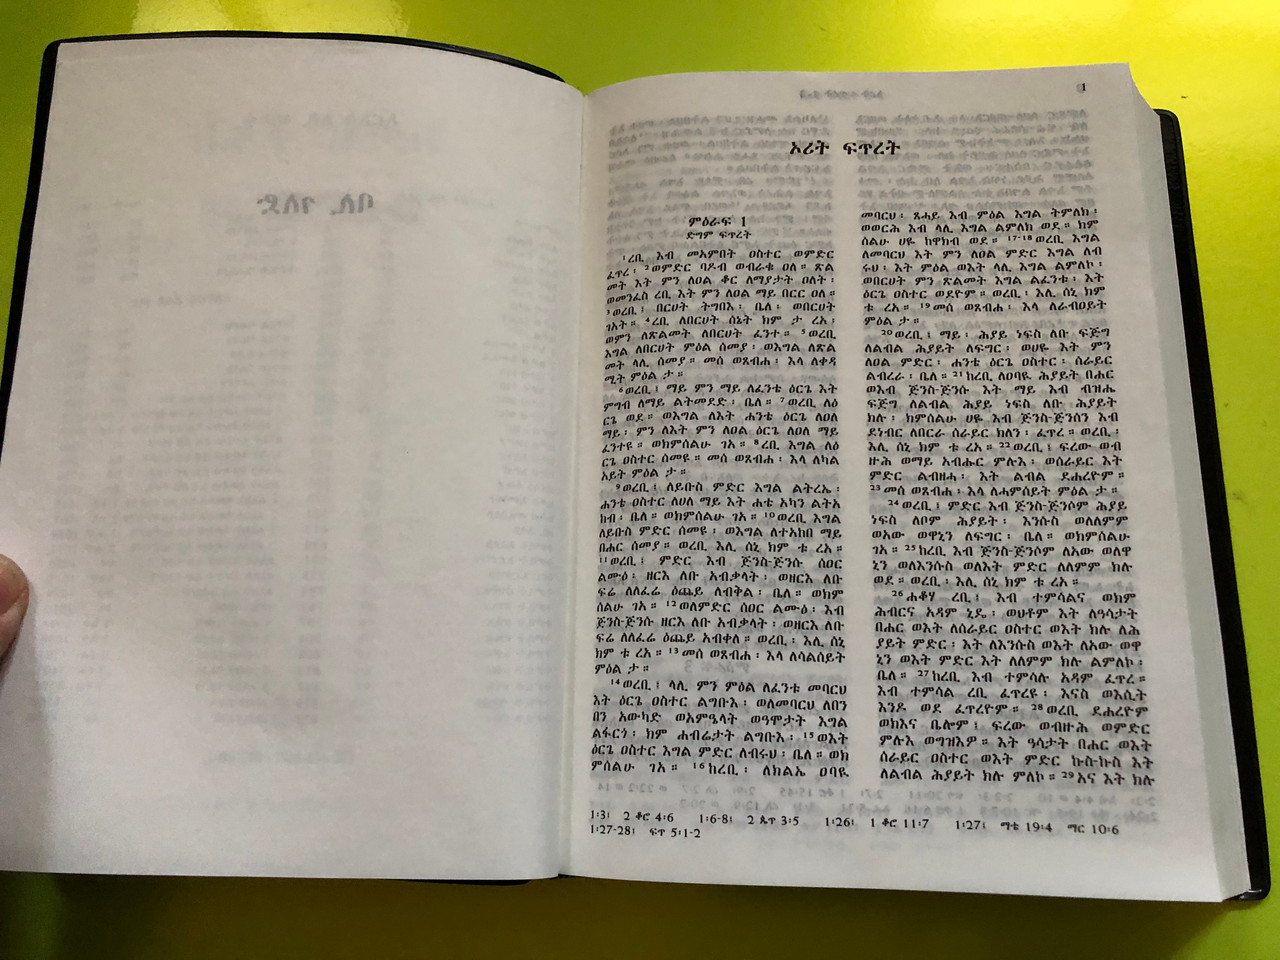 1
ኦሪት ፍጥረት
ምዕራፍ 1
ድግም ፍጥረት
¹ረቢ እብ መአምበት ዐስተር ወምድር
ፈጥረ ፡ ²ወምድር ባዶብ ወብራቱ ዐለ ። ጽል
መት እት ምን ለዐል ቆር ለማያታት ዐለት ፡
ወመንፈስ ረቢ እት ምን ለዐል ማይ በርር ዐለ ።
³ወረቢ ፤ በርሀት ትግበእ ፡ ቤለ ፡ ወበርሀት
ገአት ። ⁴ረቢ ለበርሀት ሰኔት ክም ታ ረአ ፡
ወምን ለጽልመት ለበርሀት ፈንተ ። ⁵ወረቢ
እግል ለበርሀት ምዕል ሰመያ ፡ ወእግል ለጽል
መት ላሊ ሰመያ ። መሰ ወጸብሐ ፤ እላ ለቀዳ
ሚት ምዕል ታ ።
⁶ወረቢ ፤ ማይ ምን ማይ ለፈንቴ ዕርጌ እት
ምግብ ለማይ ልትመደድ ፡ ቤለ ። ⁷ወረቢ ለዕ
ርጌ ወደ ። ወእግል ለእት ሐንቴ ዕርጌ ለዐለ
ማይ ፡ ምን ለእት ምን ለዐል ዕርጌ ለዐለ ማይ
ፈንተዩ ። ወክምሰልሁ ገአ ። ⁸ረቢ እግል ለዕ
ርጌ ዐስተር ሰመዩ ። መሰ ወጸብሐ ፤ እላ ለካል
አይት ምዕል ታ ።
⁹ወረቢ ፤ ለይቡስ ምድር እግል ልትረኤ ፡
ሐንቴ ዐስተር ለሀለ ማይ እት ሐቴ አካን ልትአ
ከብ ፡ ቤለ ። ወክምሰልሁ ገአ ። ¹⁰ወረቢ እግል
ለይቡስ ምድር ሰመዩ ፡ ወእግል ለተአከበ ማይ
በሐር ሰመያ ። ወረቢ እሊ ሰኒ ክም ቱ ረአ ።
¹¹ወረቢ ፤ ምድር እብ ጅንስ-ጅንሱ ሰዐር
ልሙዕ ፡ ዘርእ ለቡ አብቃላት ፡ ወዘርእ ለቡ
ፍሬ ለለፈሬ ዕጨይ ለብቅል ፡ ቤለ ። ወክም
ሰልሁ ገአ ። ¹²ወለምድር ሰዐር ልሙዕ ፡ እብ
ጅንስ-ጅንሱ ዘርእ ለቡ አብቃላት ፡ ወዘርእ ለቡ
ፍሬ ለለፈሬ ዕጨይ አብቀለ ። ወረቢ ፡ እሊ ሰኒ
ክም ቱ ረአ ። ¹³መሰ ወጸብሐ ፤ እላ ለሳልሰይት
ምዕል ታ ።
¹⁴ወረቢ ፤ ላሊ ምን ምዕል ለፈንቱ መባርህ
እት ዕርጌ ዐስተር ልግቡእ ፡ ወለመባርህ ለበን
በን አውካድ ወአምዔላት ወዓሞታት እግል
ልፋርጎ ፡ ክም ሐብሬታት ልግቡእ ፡ ¹⁵ወእት
ዕርጌ ዐስተር እግል ምድር ለብሩህ ፡ ቤለ ። ወክ
ምሰልሁ ገአ ። ¹⁶ከረቢ ፡ ለክልኤ ዐባዪ
መባርህ ፡ ጸሓይ እብ ምዕል እግል ትምለክ ፡
ወወርሕ እብ ላሊ እግል ልምለክ ወደ ። ክም
ሰልሁ ህዬ ከዋክብ ወደ ። ¹⁷-¹⁸ወረቢ እግል
ለመባርህ እት ምን ለዐል ምድር እግል ለብ
ሩህ ፡ እት ምዕል ወእት ላሊ እግል ልምለኮ ፡
ወበርሀት ምን ጽልመት እግል ልፈንቱ ፡ እት
ዕርጌ ዐስተር ወደዮም ። ወረቢ ፡ እሊ ሰኒ ክም
ቱ ረአ ። ¹⁹መሰ ወጸብሐ ፤ እላ ለራብዐይት
ምዕል ታ ።
²⁰ወረቢ ፤ ማይ ፡ ሕያይ ነፍስ ለቡ ፍጅግ
ለልብል ሕያይት ለፍግር ፡ ወህዬ እት ምን
ለዐል ምድር ፡ ሐንቴ ዕርጌ ዐስተር ፡ ሰራይር
ልብረራ ፡ ቤለ ። ²¹ከረቢ ለዐባዪ ሕያይት በሐር
ወእብ ጅንስ-ጅንሱ እት ማይ እብ ብዝሔ
ፍጅግ ለልብል ሕያይ ነፍስ ለቡ ሕያይት
ክሉ ፡ ክምሰልሁ ህዬ እብ ጅንስ-ጅንሰን እብ
ደነብር ለበርራ ሰራይር ክለን ፡ ፈጥረ ። ወረቢ ፡
እሊ ሰኒ ክም ቱ ረአ ። ²²ወረቢ ፤ ፍረው ወብ
ዙሕ ወማይ አብሑር ምሉእ ፡ ወሰራይር እት
ምድር ልብዘሓ ፡ እት ልብል ደሐረዮም ።
²³መሰ ወጸብሐ ፤ እላ ለሓምሰይት ምዕል ታ ።
²⁴ወረቢ ፤ ምድር እብ ጅንስ-ጅንሶም ሕያይ
ነፍስ ለቦም ሕያይት ፡ እንሱስ ወለለምም
ወአው ወዋኒን ለፍግር ፡ ቤለ ። ወክምሰልሁ
ገአ ። ²⁵ከረቢ እብ ጅንስ-ጅንሶም ለአው ወለዋ
ኒን ወለእንሱስ ወለእት ምድር ለለምም ክሉ
ወደ ። ወረቢ ፡ እሊ ሰኒ ክም ቱ ረአ ።
²⁶ሐቆሃ ረቢ ፤ እብ ተምሳልና ወክም
ሕብርና አዳም ኒዴ ፡ ወህቶም እት ለዓሳታት
በሐር ወእት ለሰራይር ዐስተር ወእት ክሉ ለሕ
ያይት ምድር ፡ እት ለእንሱስ ወእት ለአው ወዋ
ኒን ወእት ምድር እት ለለምም ክሉ ልምለኮ ፡
ቤለ ። ²⁷ከረቢ እብ ተምሳሉ አዳም ፈጥረ ።
እብ ተምሳል ረቢ ፈጥረዩ ፡ እናስ ወእሲት
እንዶ ወደ ፈጥረዮም ። ²⁸ወረቢ ደሐረዮም
ወክእና ቤሎም ፤ ፍረው ወብዙሕ ወምድር
ምሉእ ወግዝእዎ ። እት ዓሳታት በሐር ወእት
ሰራይር ዐስተር ወእት ምድር ኩስ-ኩስ እት
ለልብል ሕያይት ክሉ ምለኮ ። ²⁹አና እት ክሉ
1፡3፤ 2 ቆሮ 4፡6 1፡6-8፤ 2 ጴጥ 3፡5 1፡26፤ 1 ቆሮ 11፡7 1፡27፤ ማቴ 19፡4 ማር 10፡6
1፡27-28፤ ፍጥ 5፡1-2